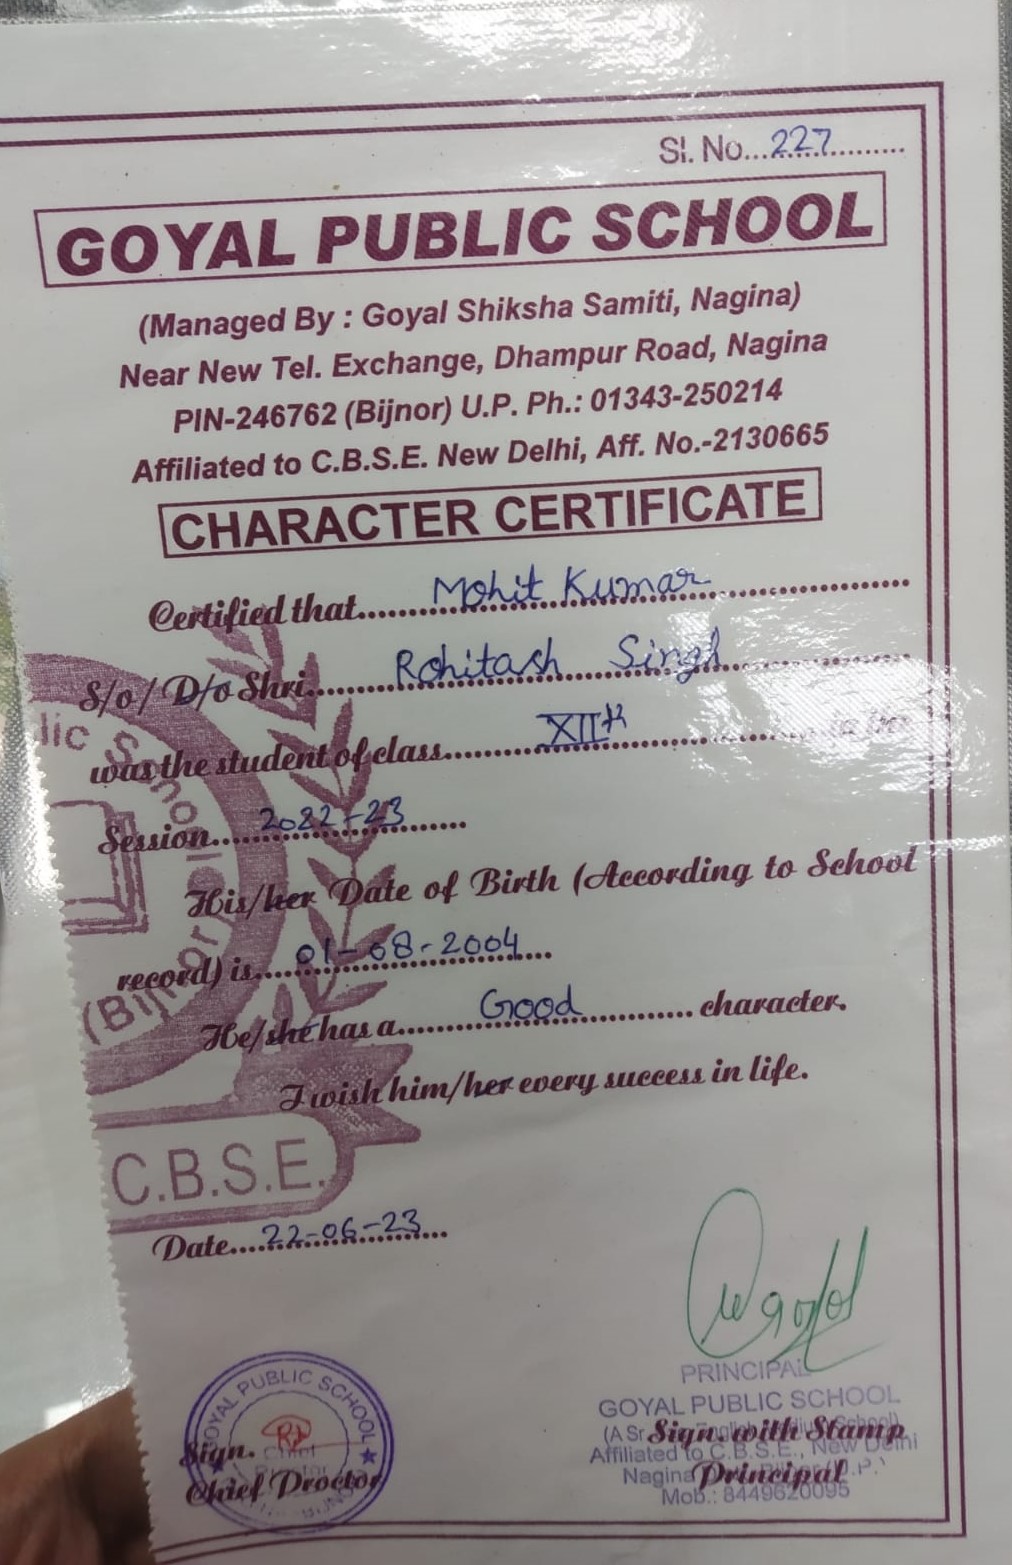 Sl. No...227..........
GOYAL PUBLIC SCHOOL
(Managed By : Goyal Shiksha Samiti, Nagina)
Near New Tel. Exchange, Dhampur Road, Nagina
PIN-246762 (Bijnor) U.P. Ph.: 01343-250214
Affiliated to C.B.S.E. New Delhi, Aff. No.-2130665
CHARACTER CERTIFICATE
Certified that..... Mohit Kumar .....
S/o / D/o Shri..... Rohitash Singh .....
was the student of class..... XIIth ..... in the
Session..... 2022-23 .....
His/her Date of Birth (According to School
record) is..... 01-08-2004 .....
He/she has a..... Good ..... character.
I wish him/her every success in life.
lic School
(Bijnor)
C.B.S.E.
Date.... 22-06-23 ....
PRINCIPAL
GOYAL PUBLIC SCHOOL
Affiliated to C.B.S.E., New Delhi
Nagina
Mob.: 8449620095
Sign. with Stamp
Principal
GOYAL PUBLIC SCHOOL
Chief
Sign.
Chief Proctor